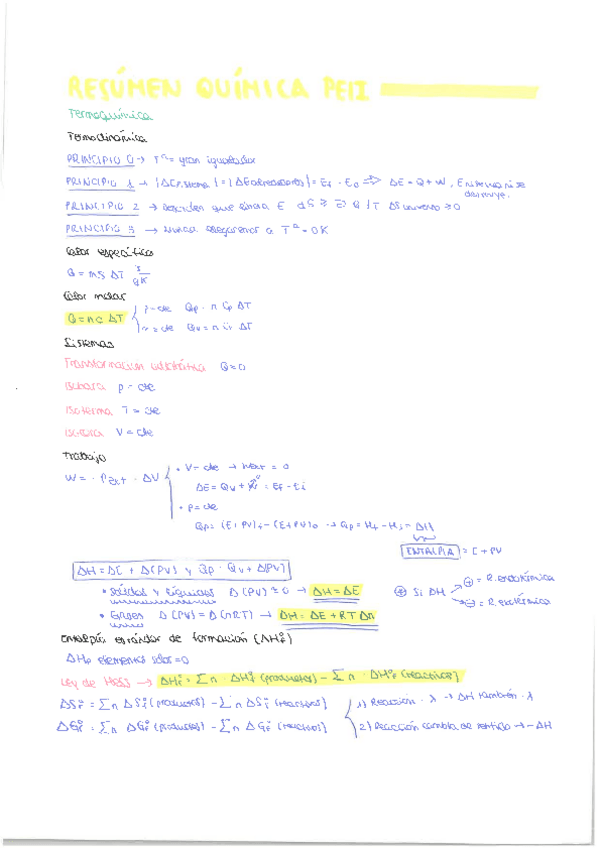 RESÚMEN QUÍMICA PEIZ
Termoquímica
Termodinámica
PRINCIPIO 0 → Tª = gran igualador
PRINCIPIO 1 → |ΔE sistema| = |ΔE alrededores| = Ef - E0 ⇒ ΔE = Q + W, E ni se crea ni se destruye.
PRINCIPIO 2 → dS ≥ Q / T ΔS universo ≥ 0
PRINCIPIO 3 → nunca llegaremos a Tª = 0K
Calor específico
Q = mS ΔT J/gK
Calor molar
Q = nC ΔT
P = cte Qp = n Cp ΔT
V = cte Qv = n Cv ΔT
Sistemas
Transformación adiabática Q = 0
Isobara p = cte
Isoterma T = cte
Isocora V = cte
Trabajo
W = - Pext · ΔV
• V = cte → = 0
ΔE = Qv + W = Ef - Ei
• p = cte
Qp = (E + PV)f - (E + PV)0 → Qp = Hf - Hi = ΔH
ENTALPIA = E + PV
ΔH = ΔE + Δ(PV) y Qp = Qv + Δ(PV)
• Sólidos y líquidos Δ(PV) ≈ 0 → ΔH = ΔE
• Gases Δ(PV) = Δ(nRT) → ΔH = ΔE + RTΔn
⊕ Si ΔH
⊕ = R. endotérmica
⊖ = R. exotérmica
Entalpía estándar de formación (ΔHf°)
ΔHf elementos = 0
Ley de Hess → ΔHr° = Σ n · ΔHf° (productos) - Σ n · ΔHf° (reactivos)
ΔSr° = Σ n ΔSf° (productos) - Σ n ΔSf° (reactivos)
ΔGr° = Σ n ΔGf° (productos) - Σ n ΔGf° (reactivos)
1) Reacción · λ → ΔH también · λ
2) Reacción cambia de sentido → -ΔH